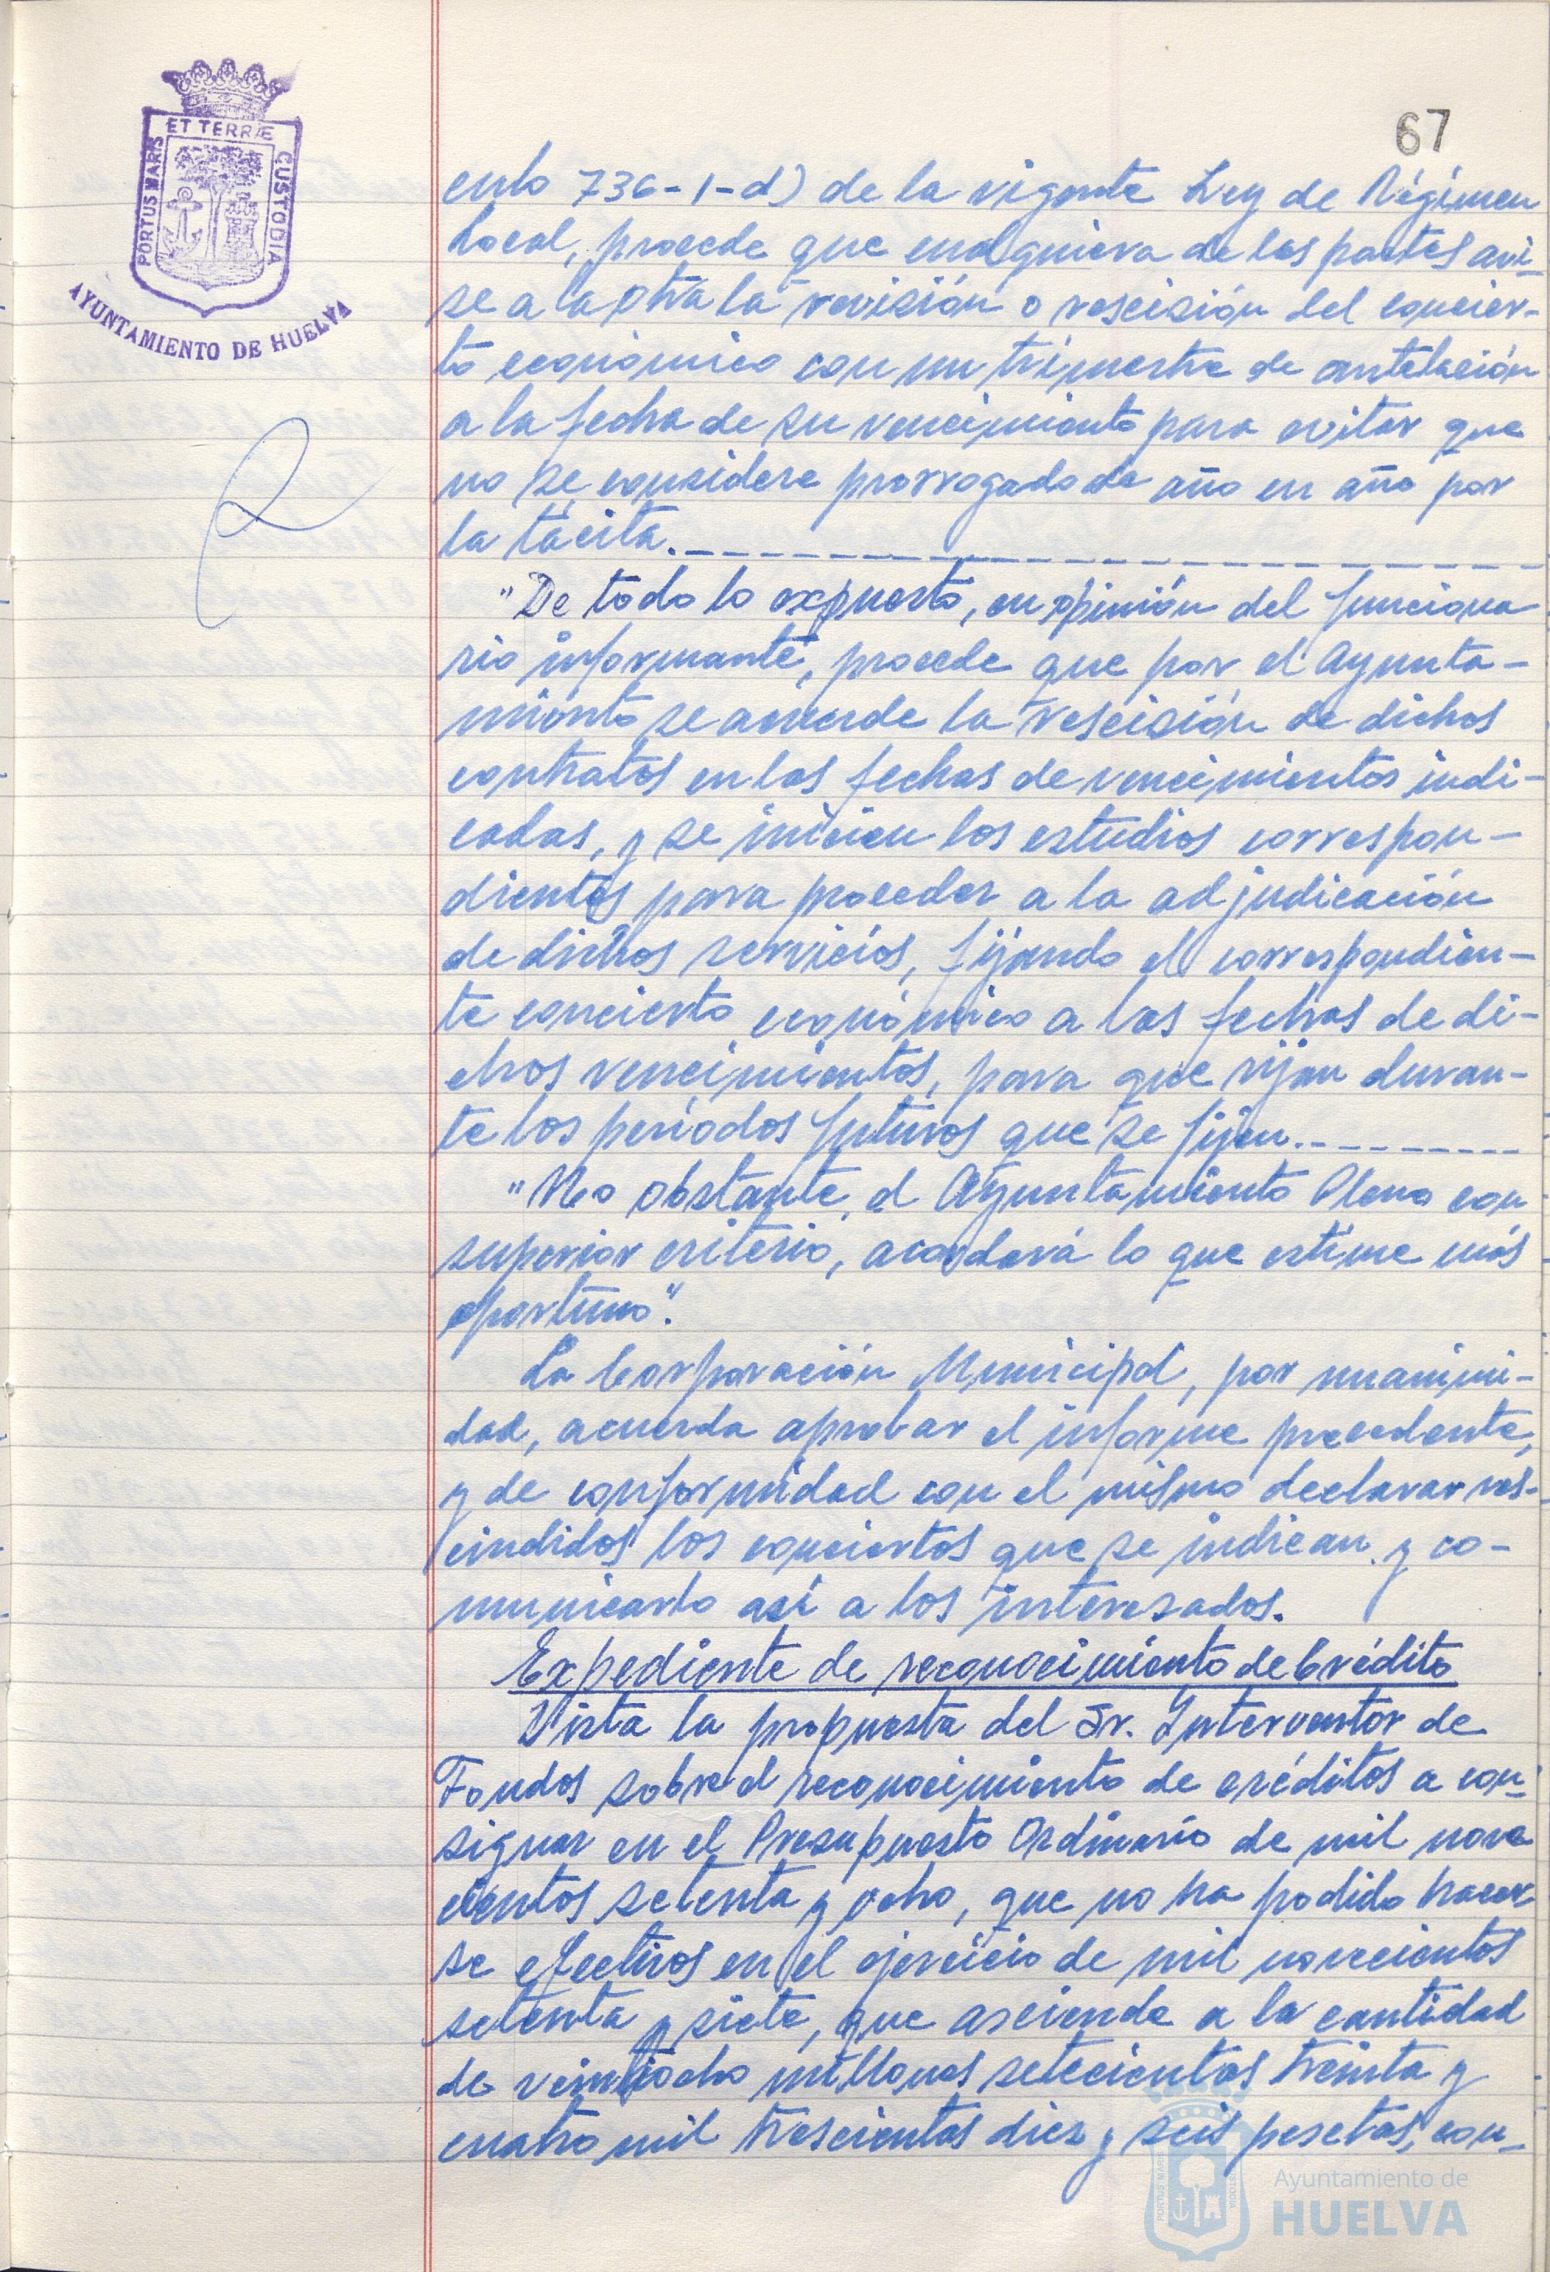 67
ET TERRÆ
PORTUS MARIS
CUSTODIA
AYUNTAMIENTO DE HUELVA
culo 736-1-d) de la vigente Ley de Régimen
Local, procede que cualquiera de las partes avi-
se a la otra la revisión o rescisión del concier-
to económico con un trimestre de antelación
a la fecha de su vencimiento para evitar que
no se considere prorrogado de año en año por
la tácita.
"De todo lo expuesto, en opinión del funciona
rio informante, procede que por el Ayunta-
miento se acuerde la rescisión de dichos
contratos en las fechas de vencimientos indi-
cadas, y se inicien los estudios correspon-
dientes para proceder a la adjudicación
de dichos servicios, fijando el correspondien-
te concierto económico a las fechas de di-
chos vencimientos, para que rijan duran-
te los períodos futuros que se fijen.
"No obstante, el Ayuntamiento Pleno con
superior criterio, acordará lo que estime más
oportuno".
La Corporación Municipal, por unanimi-
dad, acuerda aprobar el informe precedente,
y de conformidad con el mismo declarar res-
cindidos los conciertos que se indican y co-
municarlo así a los interesados.
Expediente de reconocimiento de Crédito
Vista la propuesta del Sr. Interventor de
Fondos sobre el reconocimiento de créditos a con-
signar en el Presupuesto Ordinario de mil nove
cientos setenta y ocho, que no ha podido hacer
se efectivos en el ejercicio de mil novecientos
setenta y siete, que asciende a la cantidad
de veintiocho millones setecientas treinta y
cuatro mil trescientas diez y seis pesetas, con-
Ayuntamiento de
HUELVA